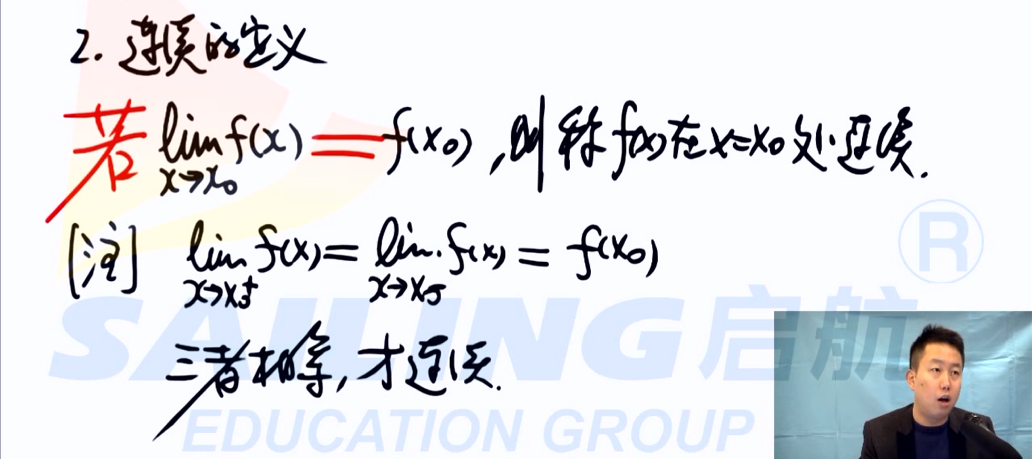 2. 连续的定义
若 lim f(x) = f(x₀), 则称 f(x) 在 x=x₀ 处连续.
x→x₀
[注] lim f(x) = lim f(x) = f(x₀)
x→x₀⁺ x→x₀⁻
三者相等, 才连续.
SAILING 启航 ®
EDUCATION GROUP